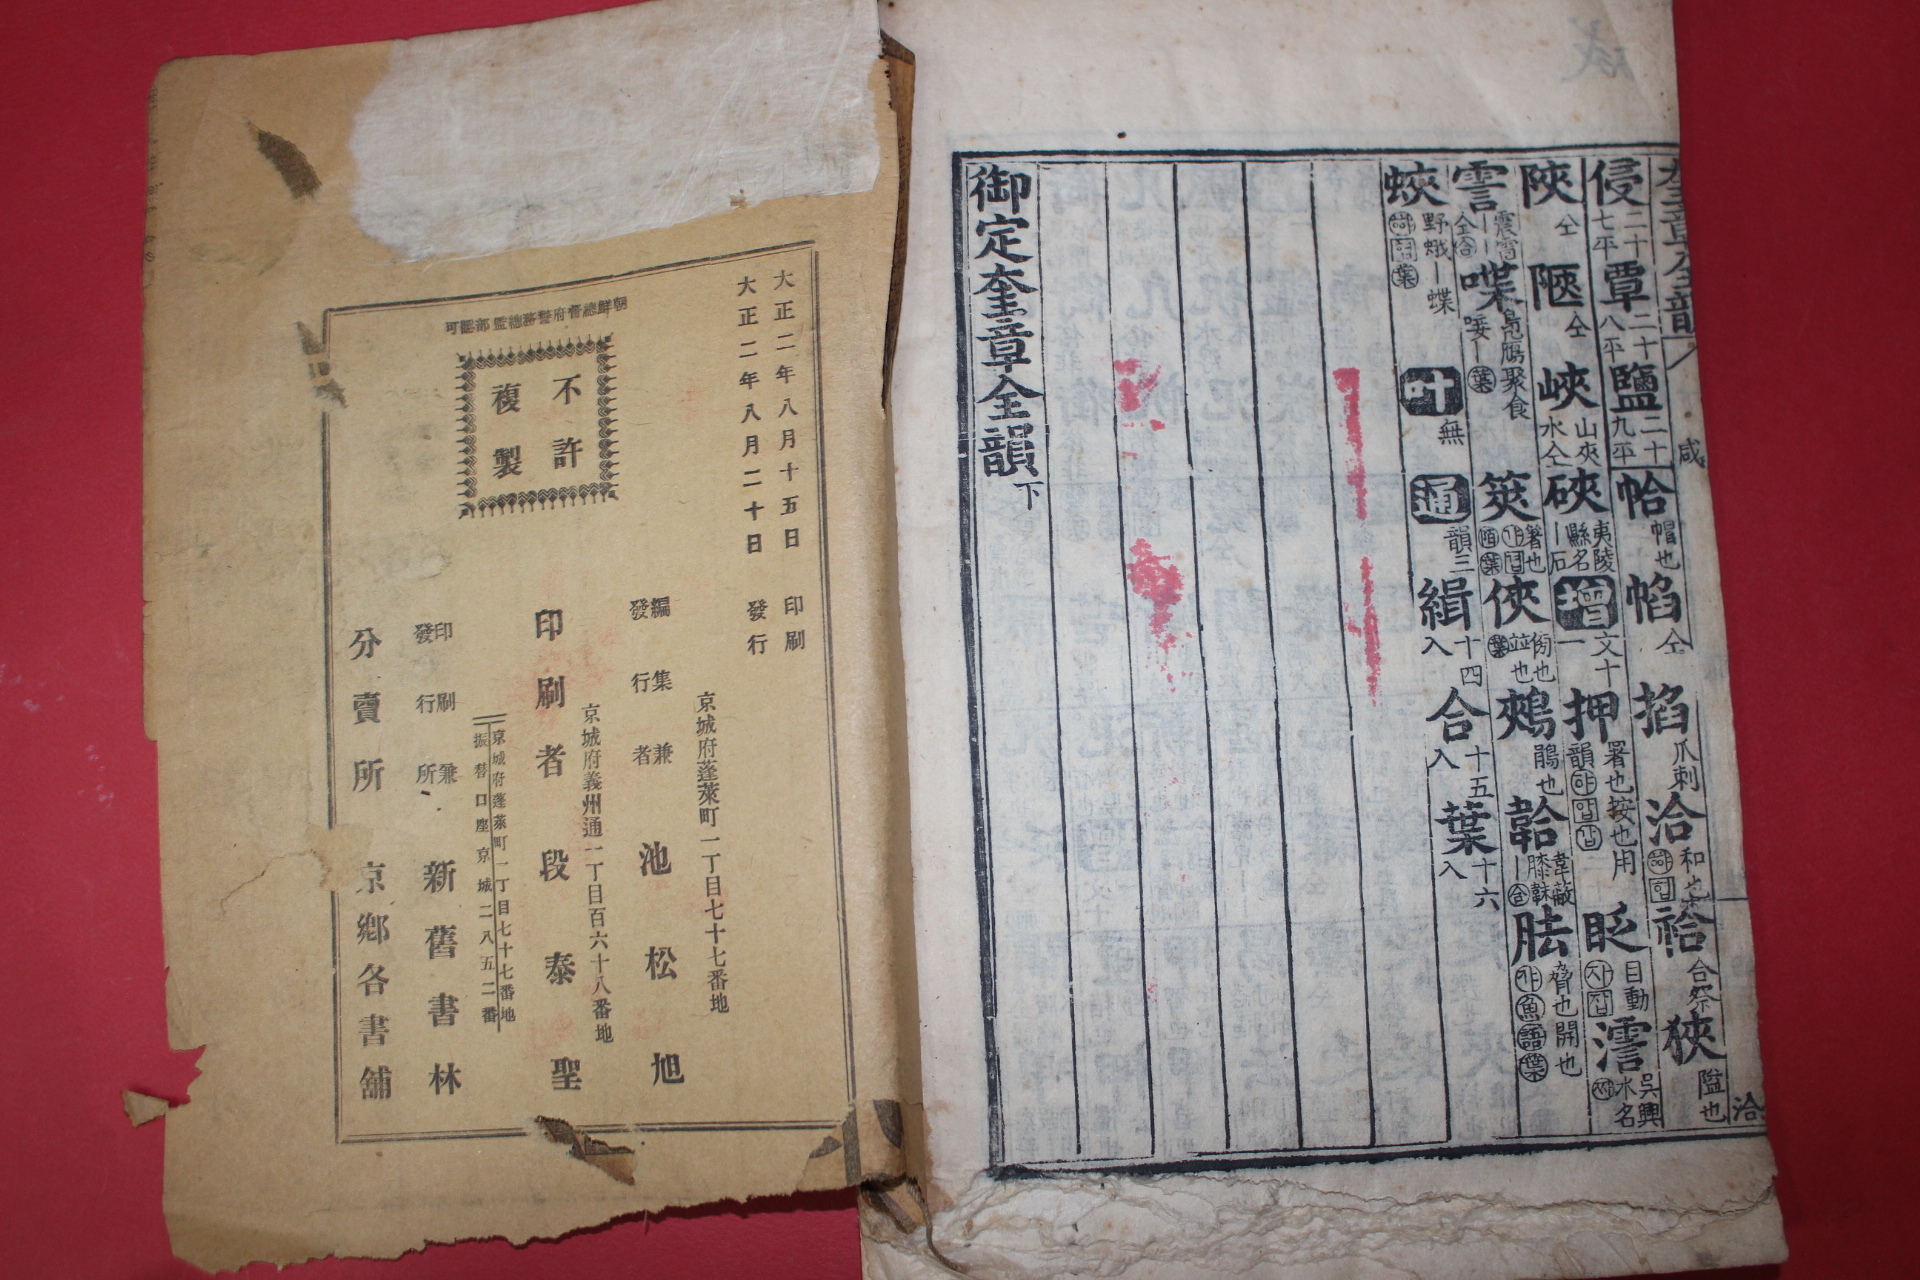 大正二年八月十五日 印刷
大正二年八月二十日 發行
朝鮮總督府警務總監部認可
不許
複製
京城府蓬萊町一丁目七十七番地
編集兼
發行者 池松旭
京城府義州通一丁目百六十八番地
印刷者 段泰聖
京城府蓬萊町一丁目七十七番地
振替口座京城二八五二番
印刷兼
發行所 新舊書林
分賣所 京鄉各書舖
奎章全韻
咸
洽
侵 二十七平 覃 二十八平 鹽 二十九平 帢 帽也 㡊 仝 掐 爪刺 洽 和也 祫 合祭 狹 隘也
陜 仝 陿 仝 峽 山夾水仝 硤 夷陵縣名ㅣ石 增 一文十 押 署也按也用韻 眨 目動 澪 吳興水名
霅 ㅣㅣ震雷 喋 唼ㅣ鳧鴈聚食 葉 筴 箸也 俠 傍也並也 鵊 鵑也 韐 韋蔽膝ㅣ韎 胠 脅也開也 魚 語 葉
蛺 野蛾ㅣ蝶 葉 叶 無 通 韻三 緝 十四入 合 十五入 葉 十六入
御定奎章全韻 下